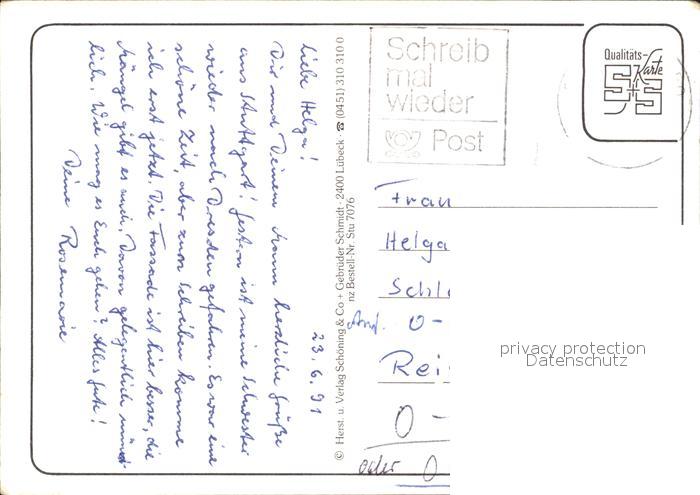 23.6.91
Liebe Helga!
Dir und Deinem Mann herzliche Grüße
aus Stuttgart! Gestern ist meine Schwester
wieder nach Dresden gefahren. Es war eine
schöne Zeit, aber zum Schreiben komme
ich erst jetzt. Die Fassade ist hier besser, die
Mängel gibt es auch. Davon gelegentlich münd-
lich. Wie mag es Euch gehen? Alles Gute!
Deine Rosemarie
© Herst. u. Verlag Schöning & Co + Gebrüder Schmidt · 2400 Lübeck · ☎ (0451) 310 310 0
nz Bestell-Nr. Stu 7076
Schreib
mal
wieder
Post
Qualitäts-
Karte
S+S
Frau
Helga
Schl
O-
Rei
O-
oder O
privacy protection
Datenschutz